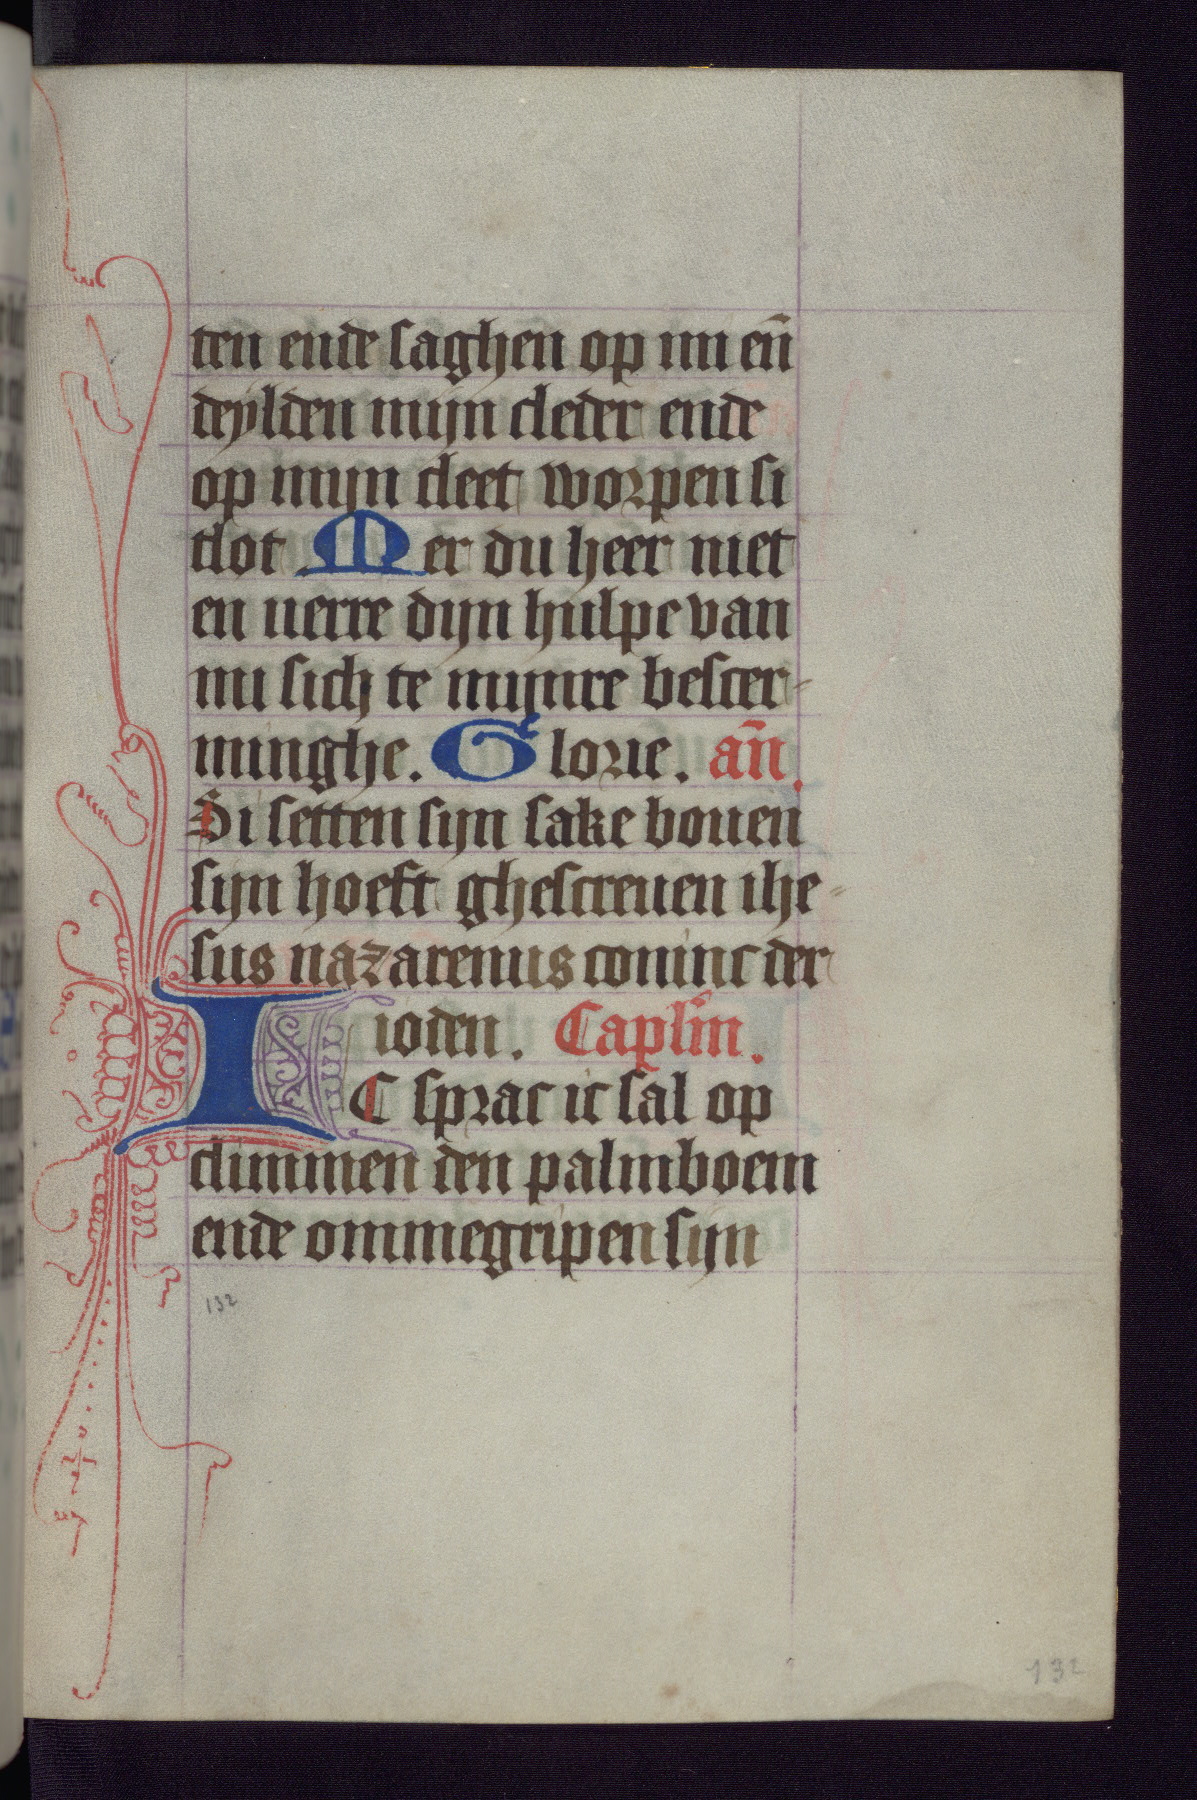 ten ende saghen op mi en̄
deylden mijn cleder ende
op mijn cleet worpen si
tlot Mer du heer niet
en uerre dijn hulpe van
mi sich te mijnre bescer-
minghe. Glorie. an̄.
Si setten sijn sake bouen
sijn hoeft ghescreuen ihe-
sus nazarenus coninc der
ioden. Caplm̄.
IC sprac ic sal op
climmen den palmboem
ende ommegripen sijn
132
132